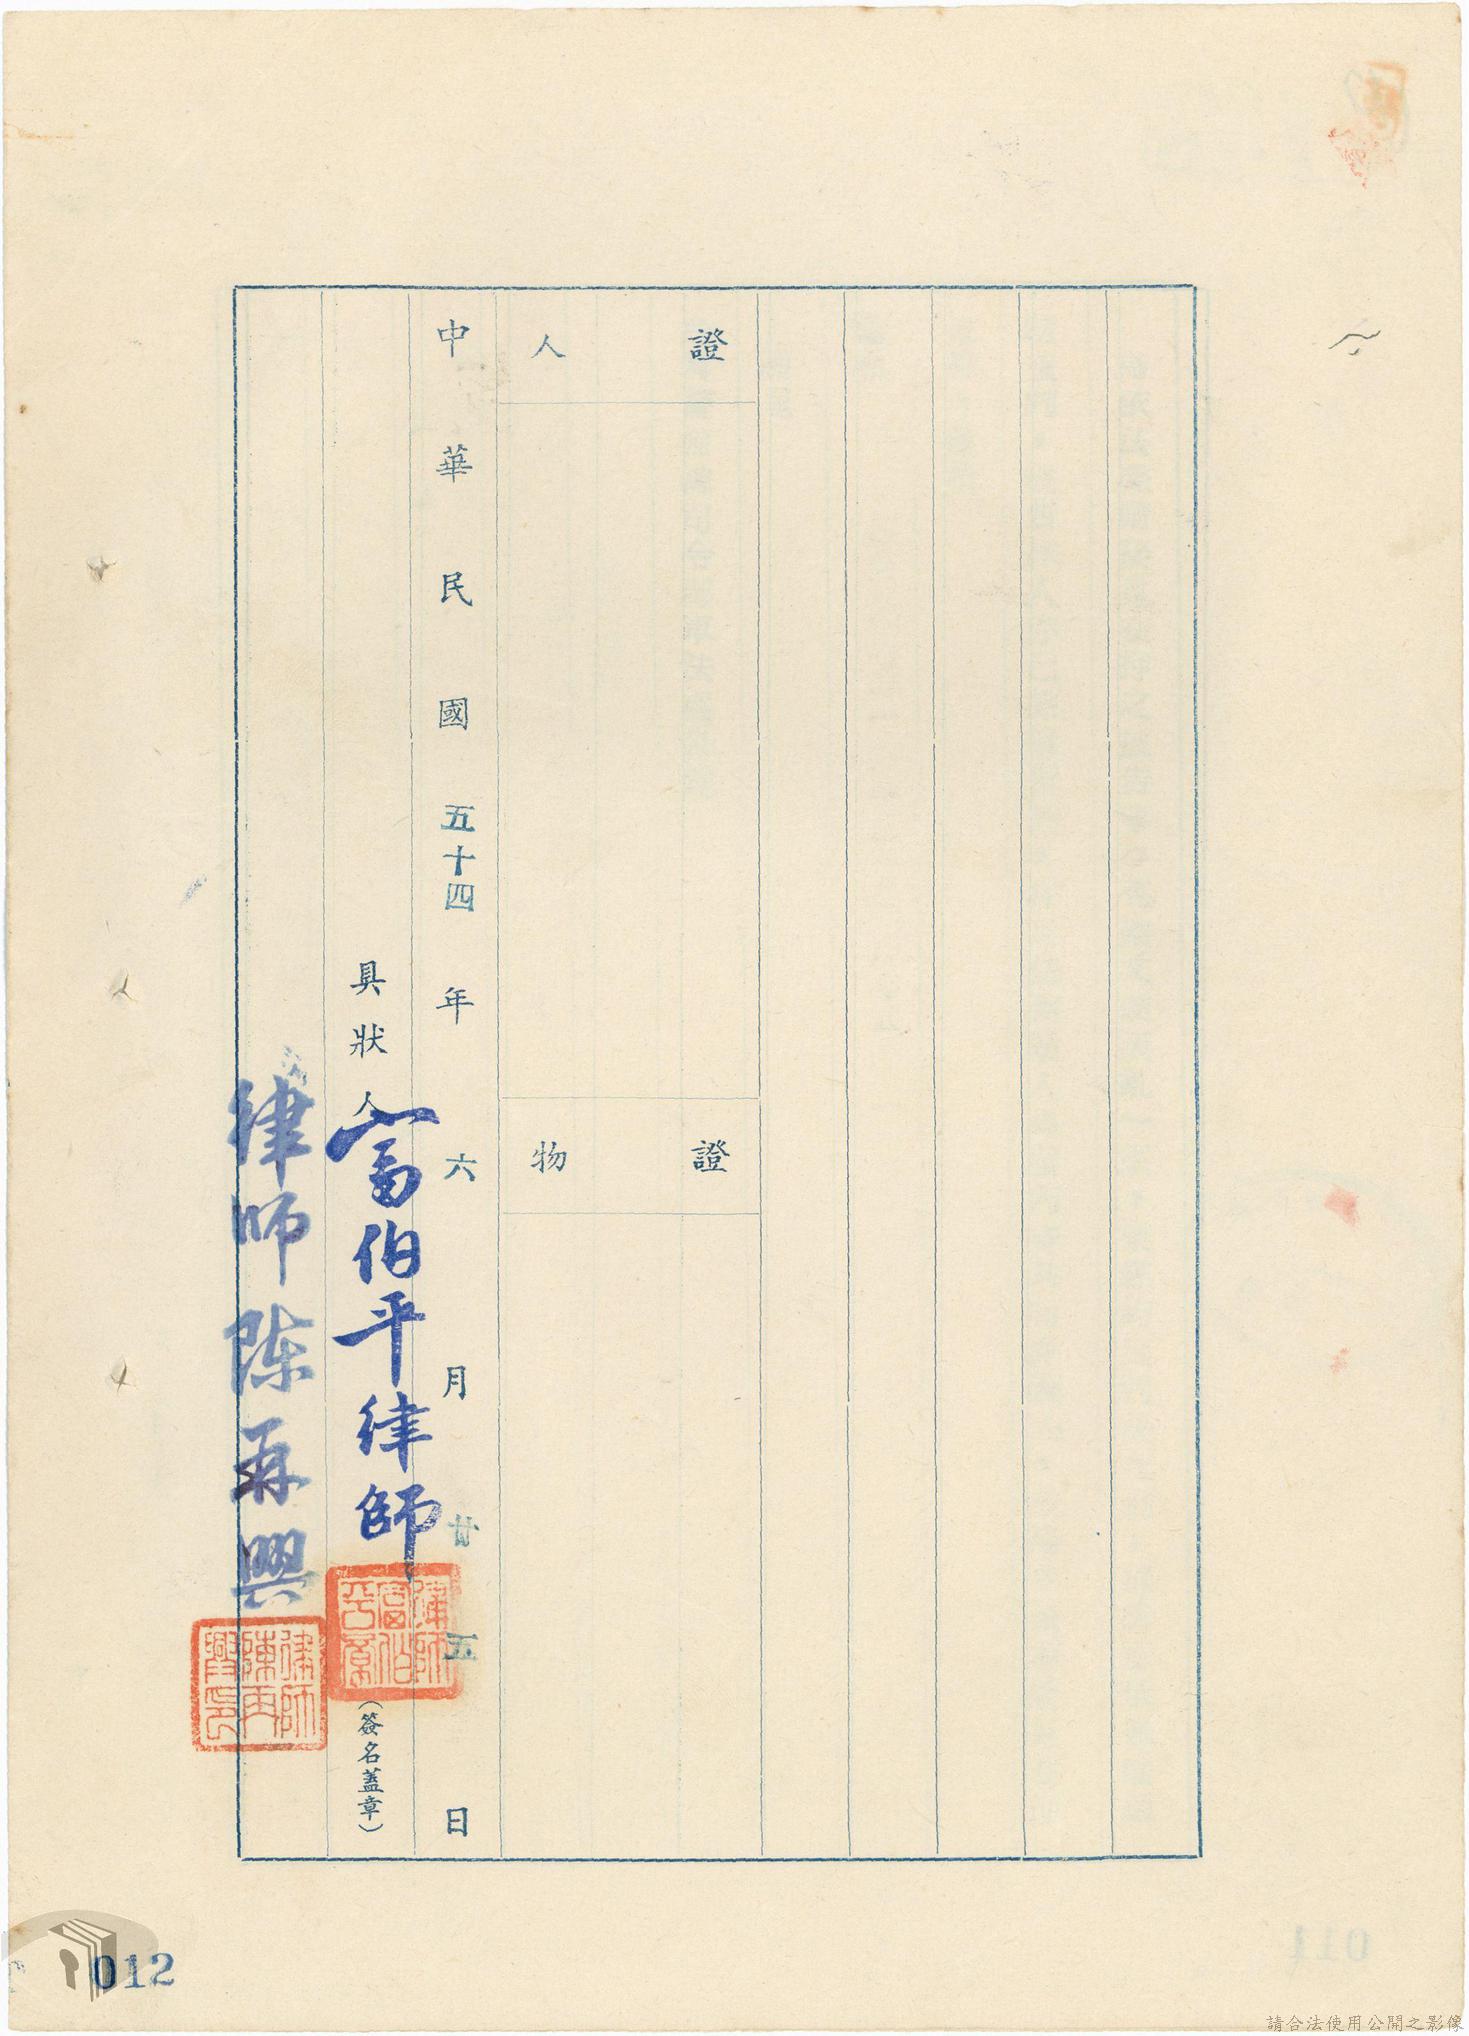 證人
證物
中華民國五十四年六月廿五日
具狀人富伯平律師（簽名蓋章）
律師富伯平章
律師陳再興
律師陳再興印
012
請合法使用公開之影像